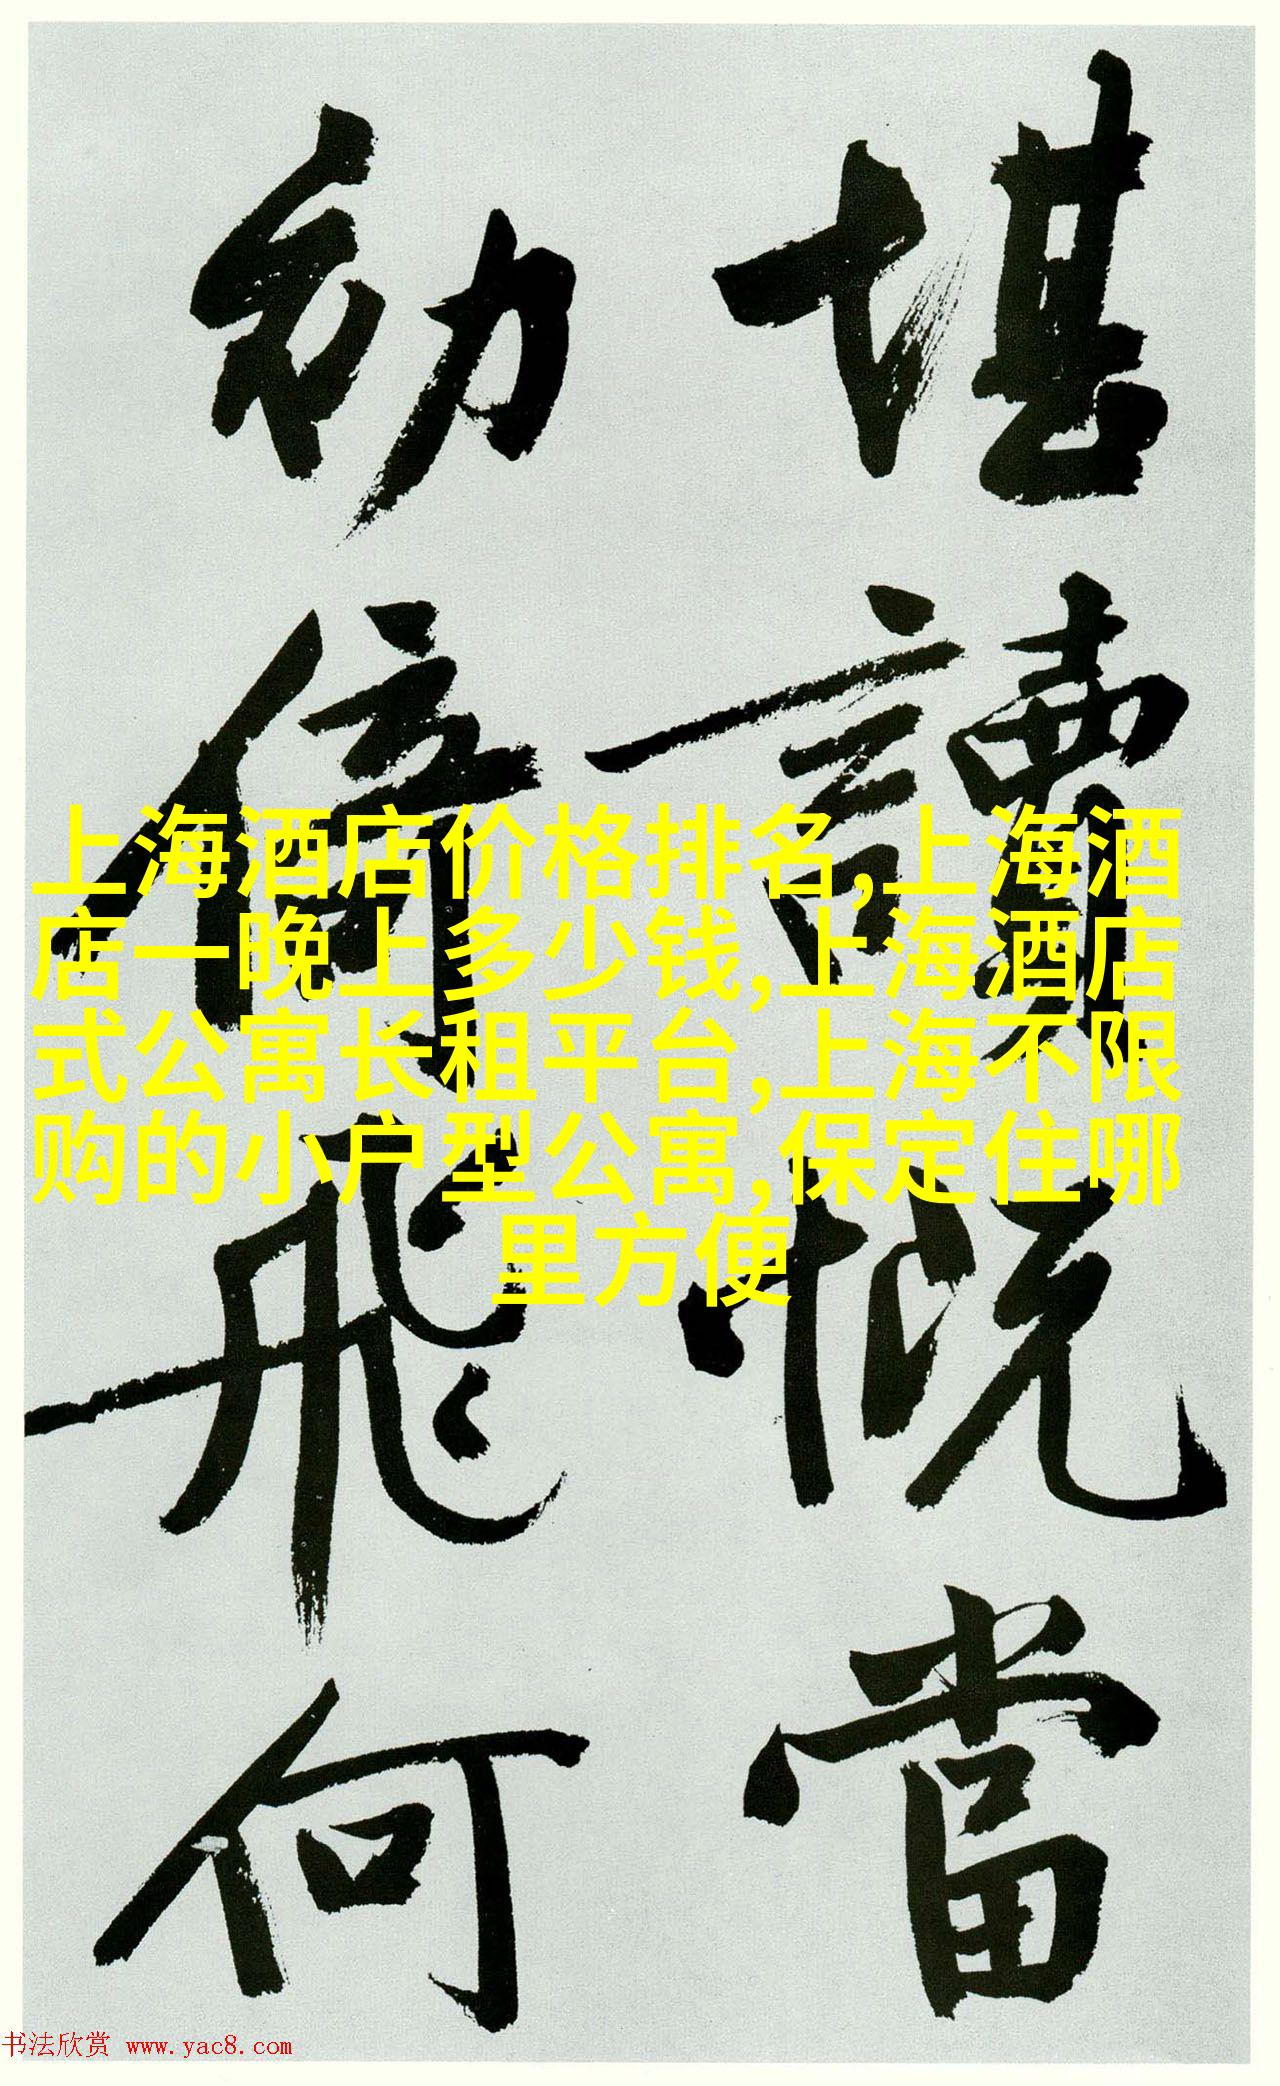 堪讀慨當
初倚飛何
上海酒店价格排名,上海酒
店一晚上多少钱,上海酒店
式公寓长租平台,上海不限
购的小户型公寓,保定住哪
里方便
书法欣赏 www.yac8.com